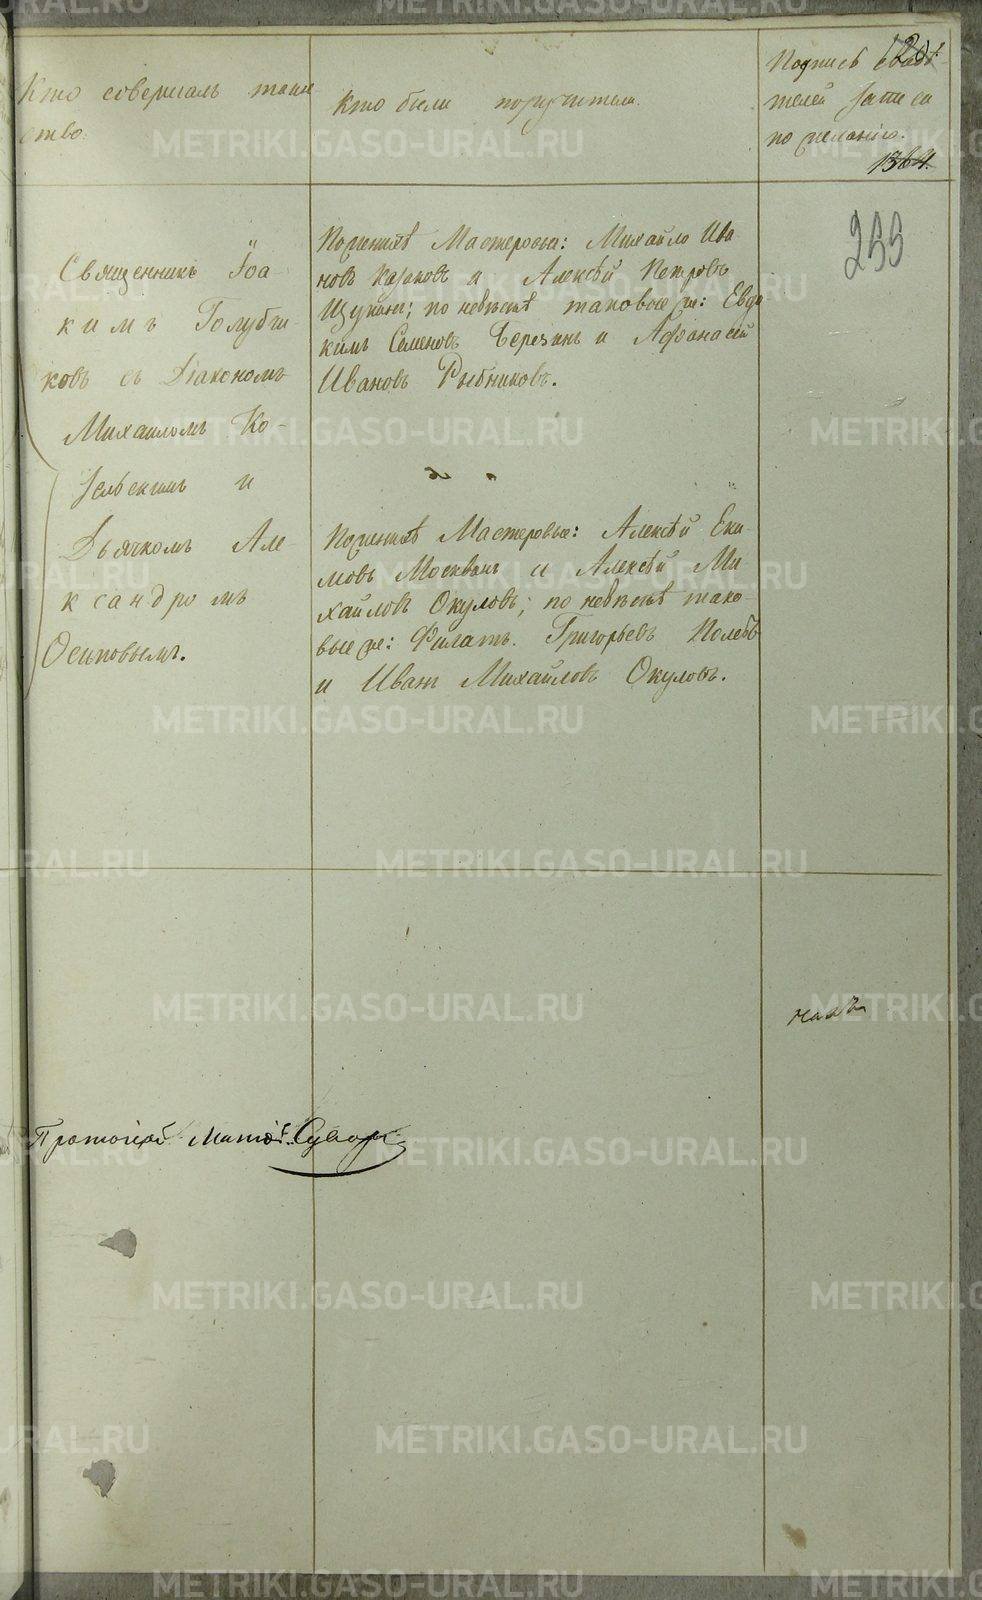 Кто совершалъ таин
ство.
Кто были поручители.
Подпись свидѣ
телей записи
по желанію.
1364.
255
Священникъ Іоа
кимъ Голубчи
ковъ съ Діакономъ
Михаиломъ Ко-
зельскимъ и
Дьячкомъ Але-
ксандромъ
Осиповымъ.
По женихѣ Мастеровые: Михайло Ива
новъ Казаковъ и Алексѣй Петровъ
Щукинъ; по невѣстѣ таковые же: Евдо
кимъ Семеновъ Березинъ и Афонасей
Ивановъ Рыбниковъ.
По женихѣ Мастеровые: Алексѣй Еки-
мовъ Москвинъ и Алексѣй Ми
хайловъ Окуловъ; по невѣстѣ тако-
вые же: Филатъ Григорьевъ
и Иванъ Михайловъ Окуловъ.
Протоіерей
METRIKI.GASO-URAL.RU